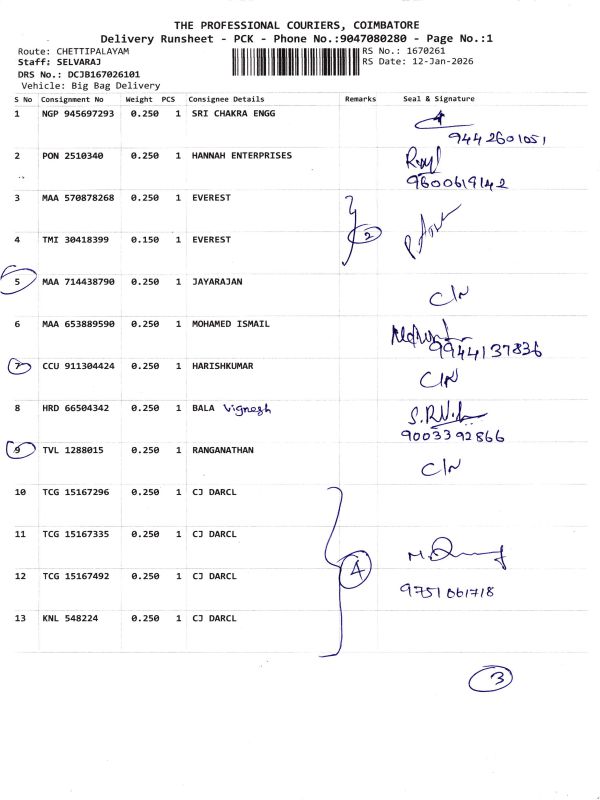 THE PROFESSIONAL COURIERS, COIMBATORE
Delivery Runsheet - PCK - Phone No.:9047080280 - Page No.:1
Route: CHETTIPALAYAM RS No.: 1670261
Staff: SELVARAJ RS Date: 12-Jan-2026
DRS No.: DCJB167026101
Vehicle: Big Bag Delivery
S No Consignment No Weight PCS Consignee Details Remarks Seal & Signature
1 NGP 945697293 0.250 1 SRI CHAKRA ENGG
9442601051
2 PON 2510340 0.250 1 HANNAH ENTERPRISES
9600619142
3 MAA 570878268 0.250 1 EVEREST
2
4 TMI 30418399 0.150 1 EVEREST
5 MAA 714438790 0.250 1 JAYARAJAN
C/N
6 MAA 653889590 0.250 1 MOHAMED ISMAIL
9944137836
7 CCU 911304424 0.250 1 HARISHKUMAR
C/N
8 HRD 66504342 0.250 1 BALA Vignesh
9003392866
9 TVL 1288015 0.250 1 RANGANATHAN
C/N
10 TCG 15167296 0.250 1 CJ DARCL
11 TCG 15167335 0.250 1 CJ DARCL
4
12 TCG 15167492 0.250 1 CJ DARCL
9751061718
13 KNL 548224 0.250 1 CJ DARCL
3